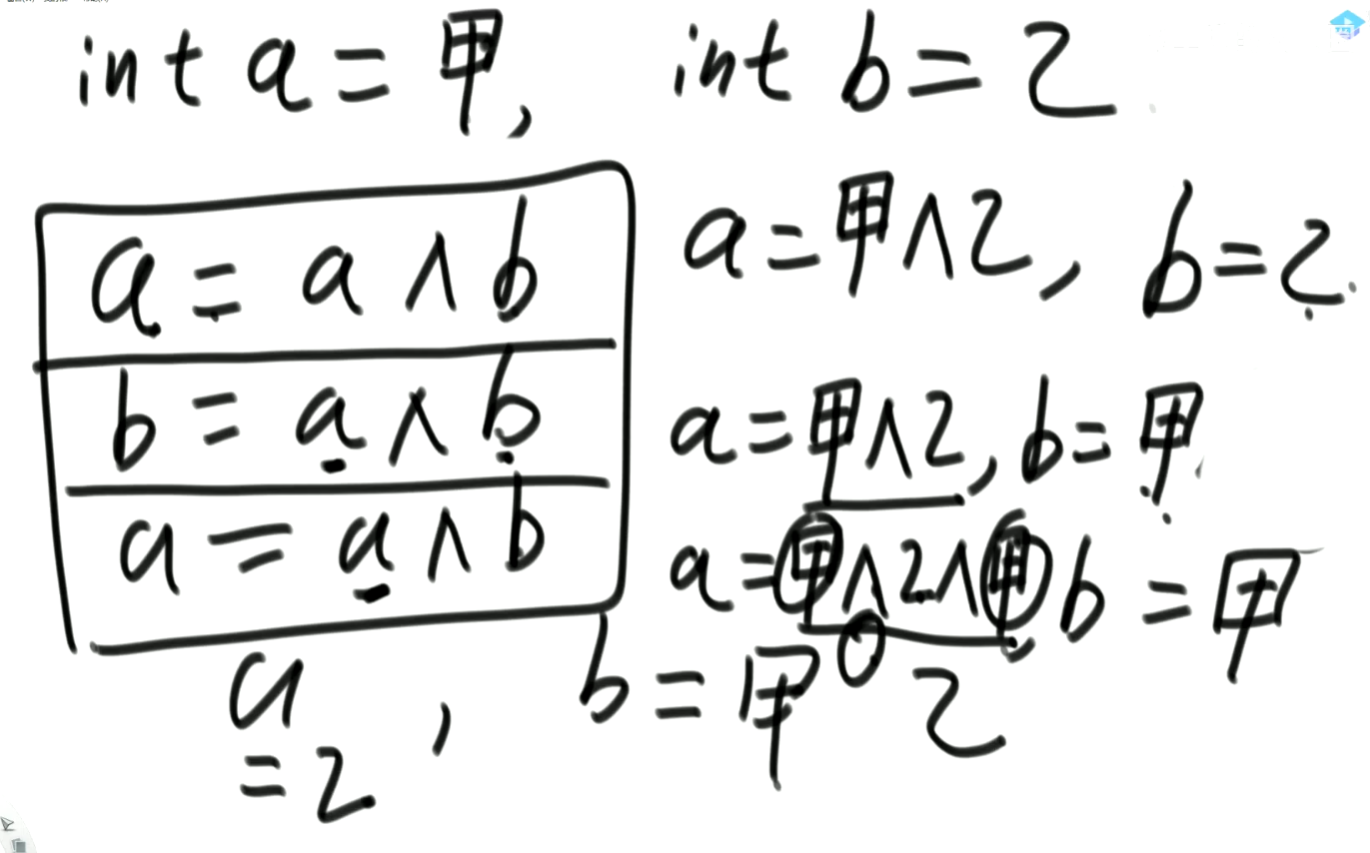 int a = 甲, int b = 乙
a = a ∧ b
a = 甲∧乙, b = 乙
b = a ∧ b
a = 甲∧乙, b = 甲
a = a ∧ b
a = 甲∧乙∧甲 b = 甲
0
a = 乙, b = 甲
乙